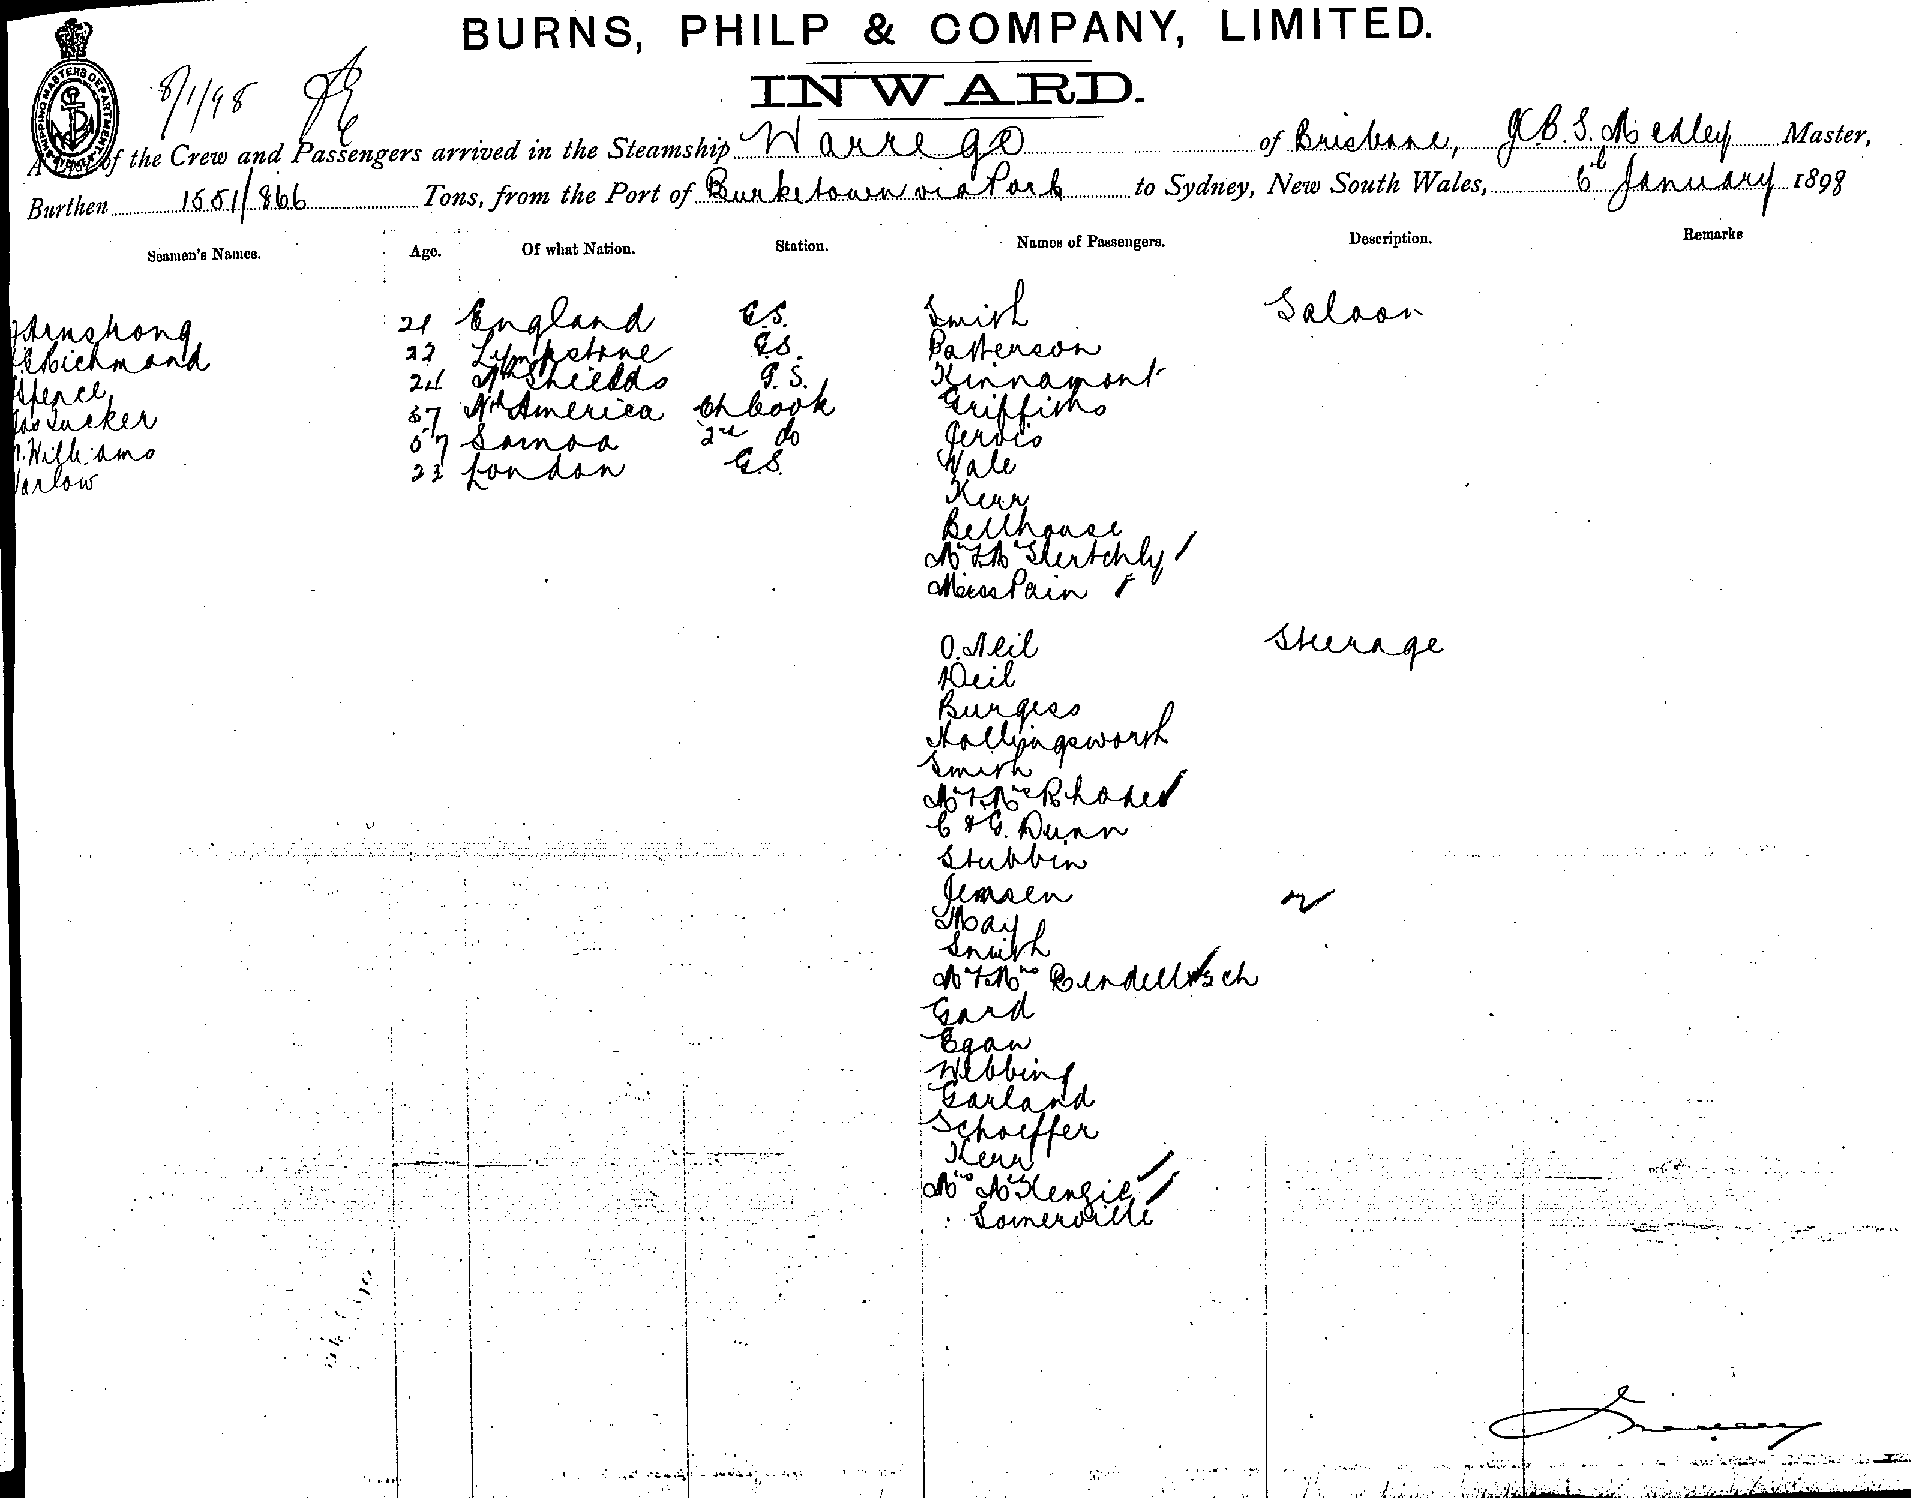 BURNS, PHILP & COMPANY, LIMITED.
INWARD.
8/1/98
of the Crew and Passengers arrived in the Steamship Warrego of Brisbane, J.C.S. Medley Master,
Burthen 1551/866 Tons, from the Port of Burketown via Ports to Sydney, New South Wales, 6th January 1898
Seamen's Names. Age. Of what Nation. Station. Names of Passengers. Description. Remarks
Armstrong 21 England G.S. Smith Saloon
Richmond 22 Lympstone G.S. Patterson
Spence 24 Nth Shields G.S. Kinnamont
Jas Tucker 37 Nth America Ch Cook Griffiths
Williams 57 Samoa 2nd do Jervis
Varlow 23 London G.S. Vale
Kerr
Bellhouse
Mr & Mrs Skertchly
Miss Pain
O.Neil Steerage
Neil
Burgess
Hollingsworth
Smith
Mr & Mrs Rhodes
C & G. Dunn
Stubbin
Jensen
May
Smith
Mr & Mrs
Gard
Egan
Webbing
Garland
Schoeffer
Kerr
Mrs McKenzie
Somerville